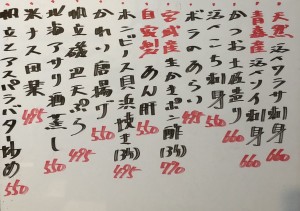 天然活ヒラマサ刺身 660
青森産活ヒラメ刺身 660
かつお土佐造り 660
活〆こち刺身 550
ボラのあらい 495
宮城産生かきポン酢(3ヶ) 770
自家製あん肝
ホンビノス貝浜焼き(3ヶ) 495
かわり唐揚げ 550
帆立磯辺天ぷら 495
北海アサリ酒蒸し 550
米ナス田楽 495
帆立とアスパラバター炒め 550